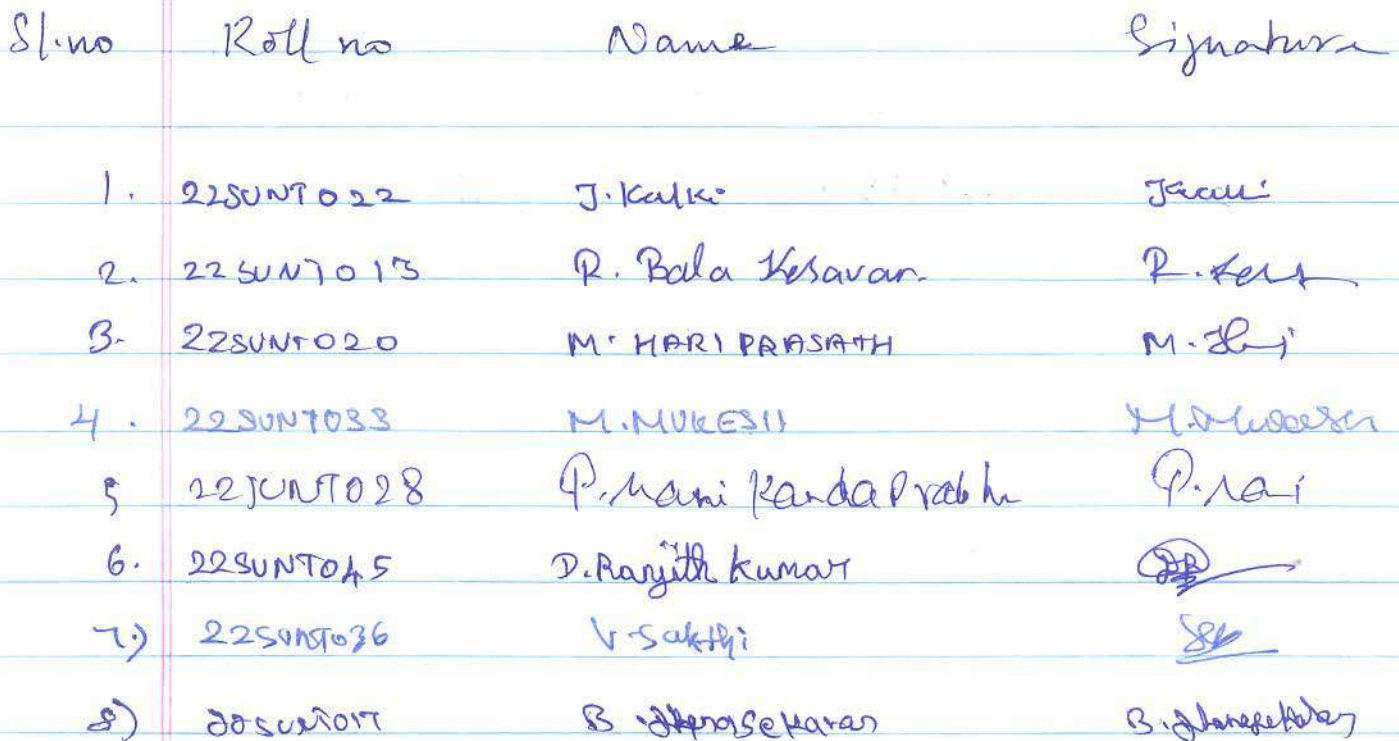 Sl.no Roll no Name Signature
1. 22SUNT022 J. Kalki
2. 22SUNT013 R. Bala Kesavan. R.
3. 22SUNT020 M. HARI PRASATH M. Hari
4. 22SUNT033 M. MUKESH M. Mukesh
5 22SUNT028 P. Mani Kanda Prabhu P. Mani
6. 22SUNT045 D. Ranjith Kumar
7.) 22SUNT036 V. Sakthi
8) 22SUNT017 B. B.